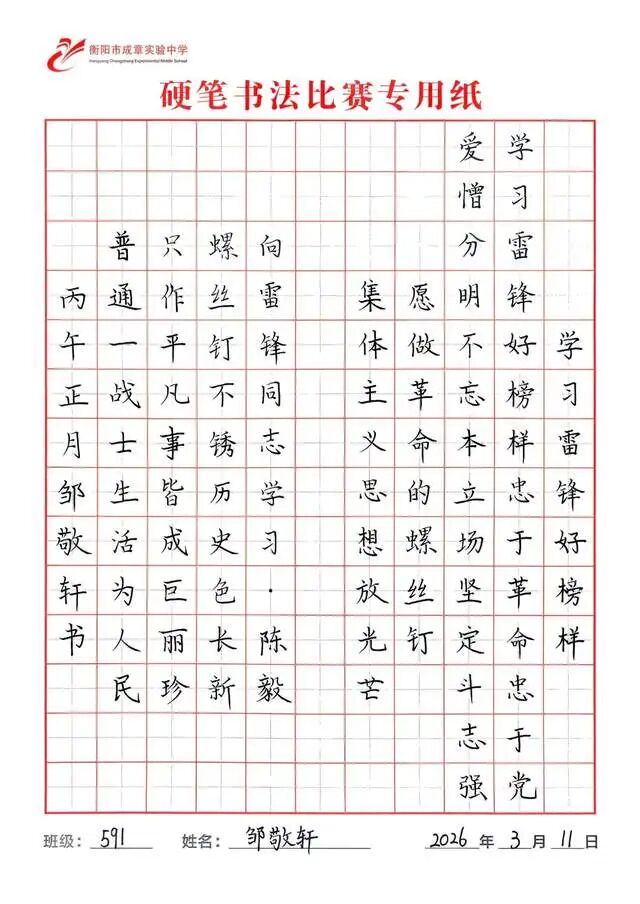 衡阳市成章实验中学
Hengyang Chengzhang Experimental Middle School
硬笔书法比赛专用纸
学习雷锋好榜样
学习雷锋好榜样忠于革命忠于党
爱憎分明不忘本立场坚定斗志强
愿做革命的螺丝钉
集体主义思想放光芒
向雷锋同志学习·陈毅
螺丝钉不锈历史色长新
只作平凡事皆成巨丽珍
普通一战士生活为人民
丙午正月邹敬轩书
班级: 591 姓名: 邹敬轩 2026年3月11日